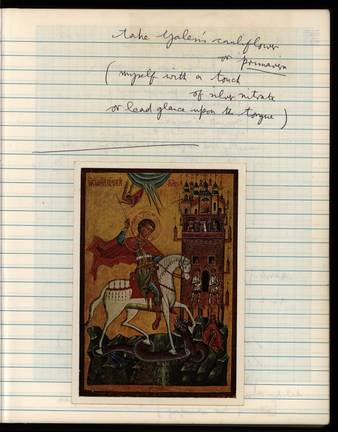 take Galen's cauliflower
or primavera
(myself with a touch
of silver nitrate
or lead glance upon the tongue)